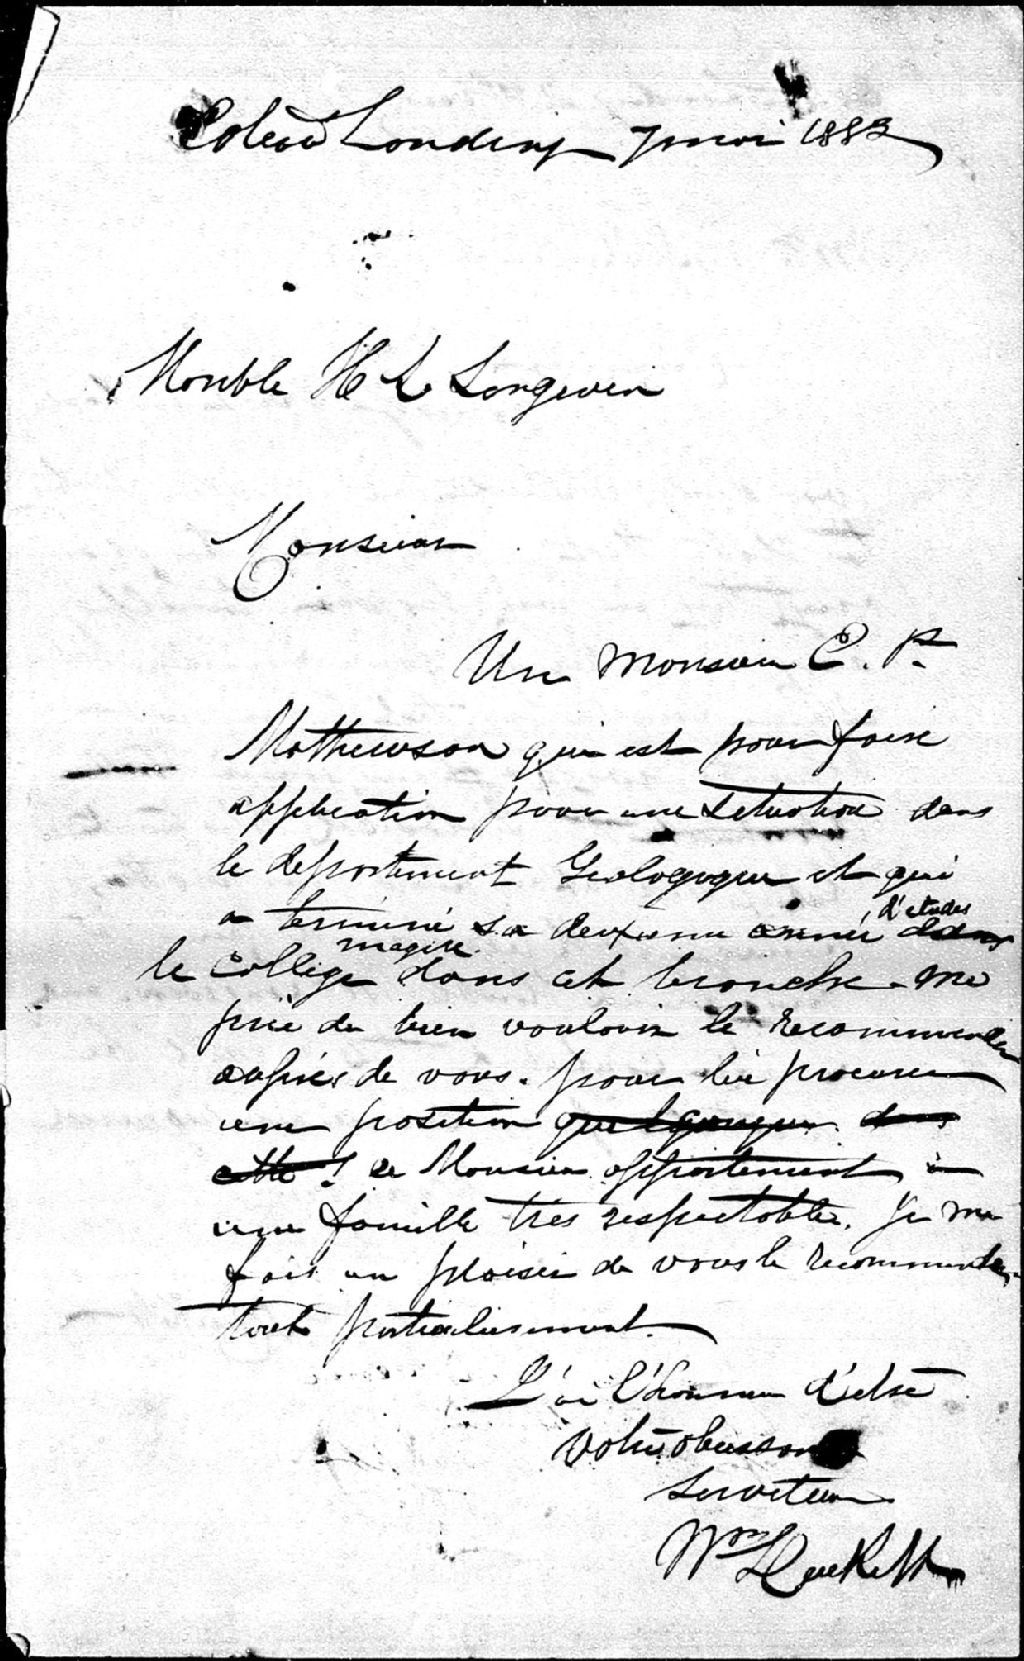 Coteau Landing 7 mai 1883
Honble H L Langevin
Monsieur
Un Monsieur E. P.
Mathewson qui est pour faire
application pour une situation dans
le department Geologique et qui
a terminé sa deuxieme année d'etudes dans
le College magile dans cet branche. me
prie de bien vouloir le recommender
auprés de vous. pour lui procurer
une position quelquonque dans
cette ce Monsieur appartenant à
une famille trés respectable. Je me
fais un plaisir de vous le recommender
tout particulierement.
J'ai l'honneur d'etre
Votre obeissant
Serviteur
Wm Duckett